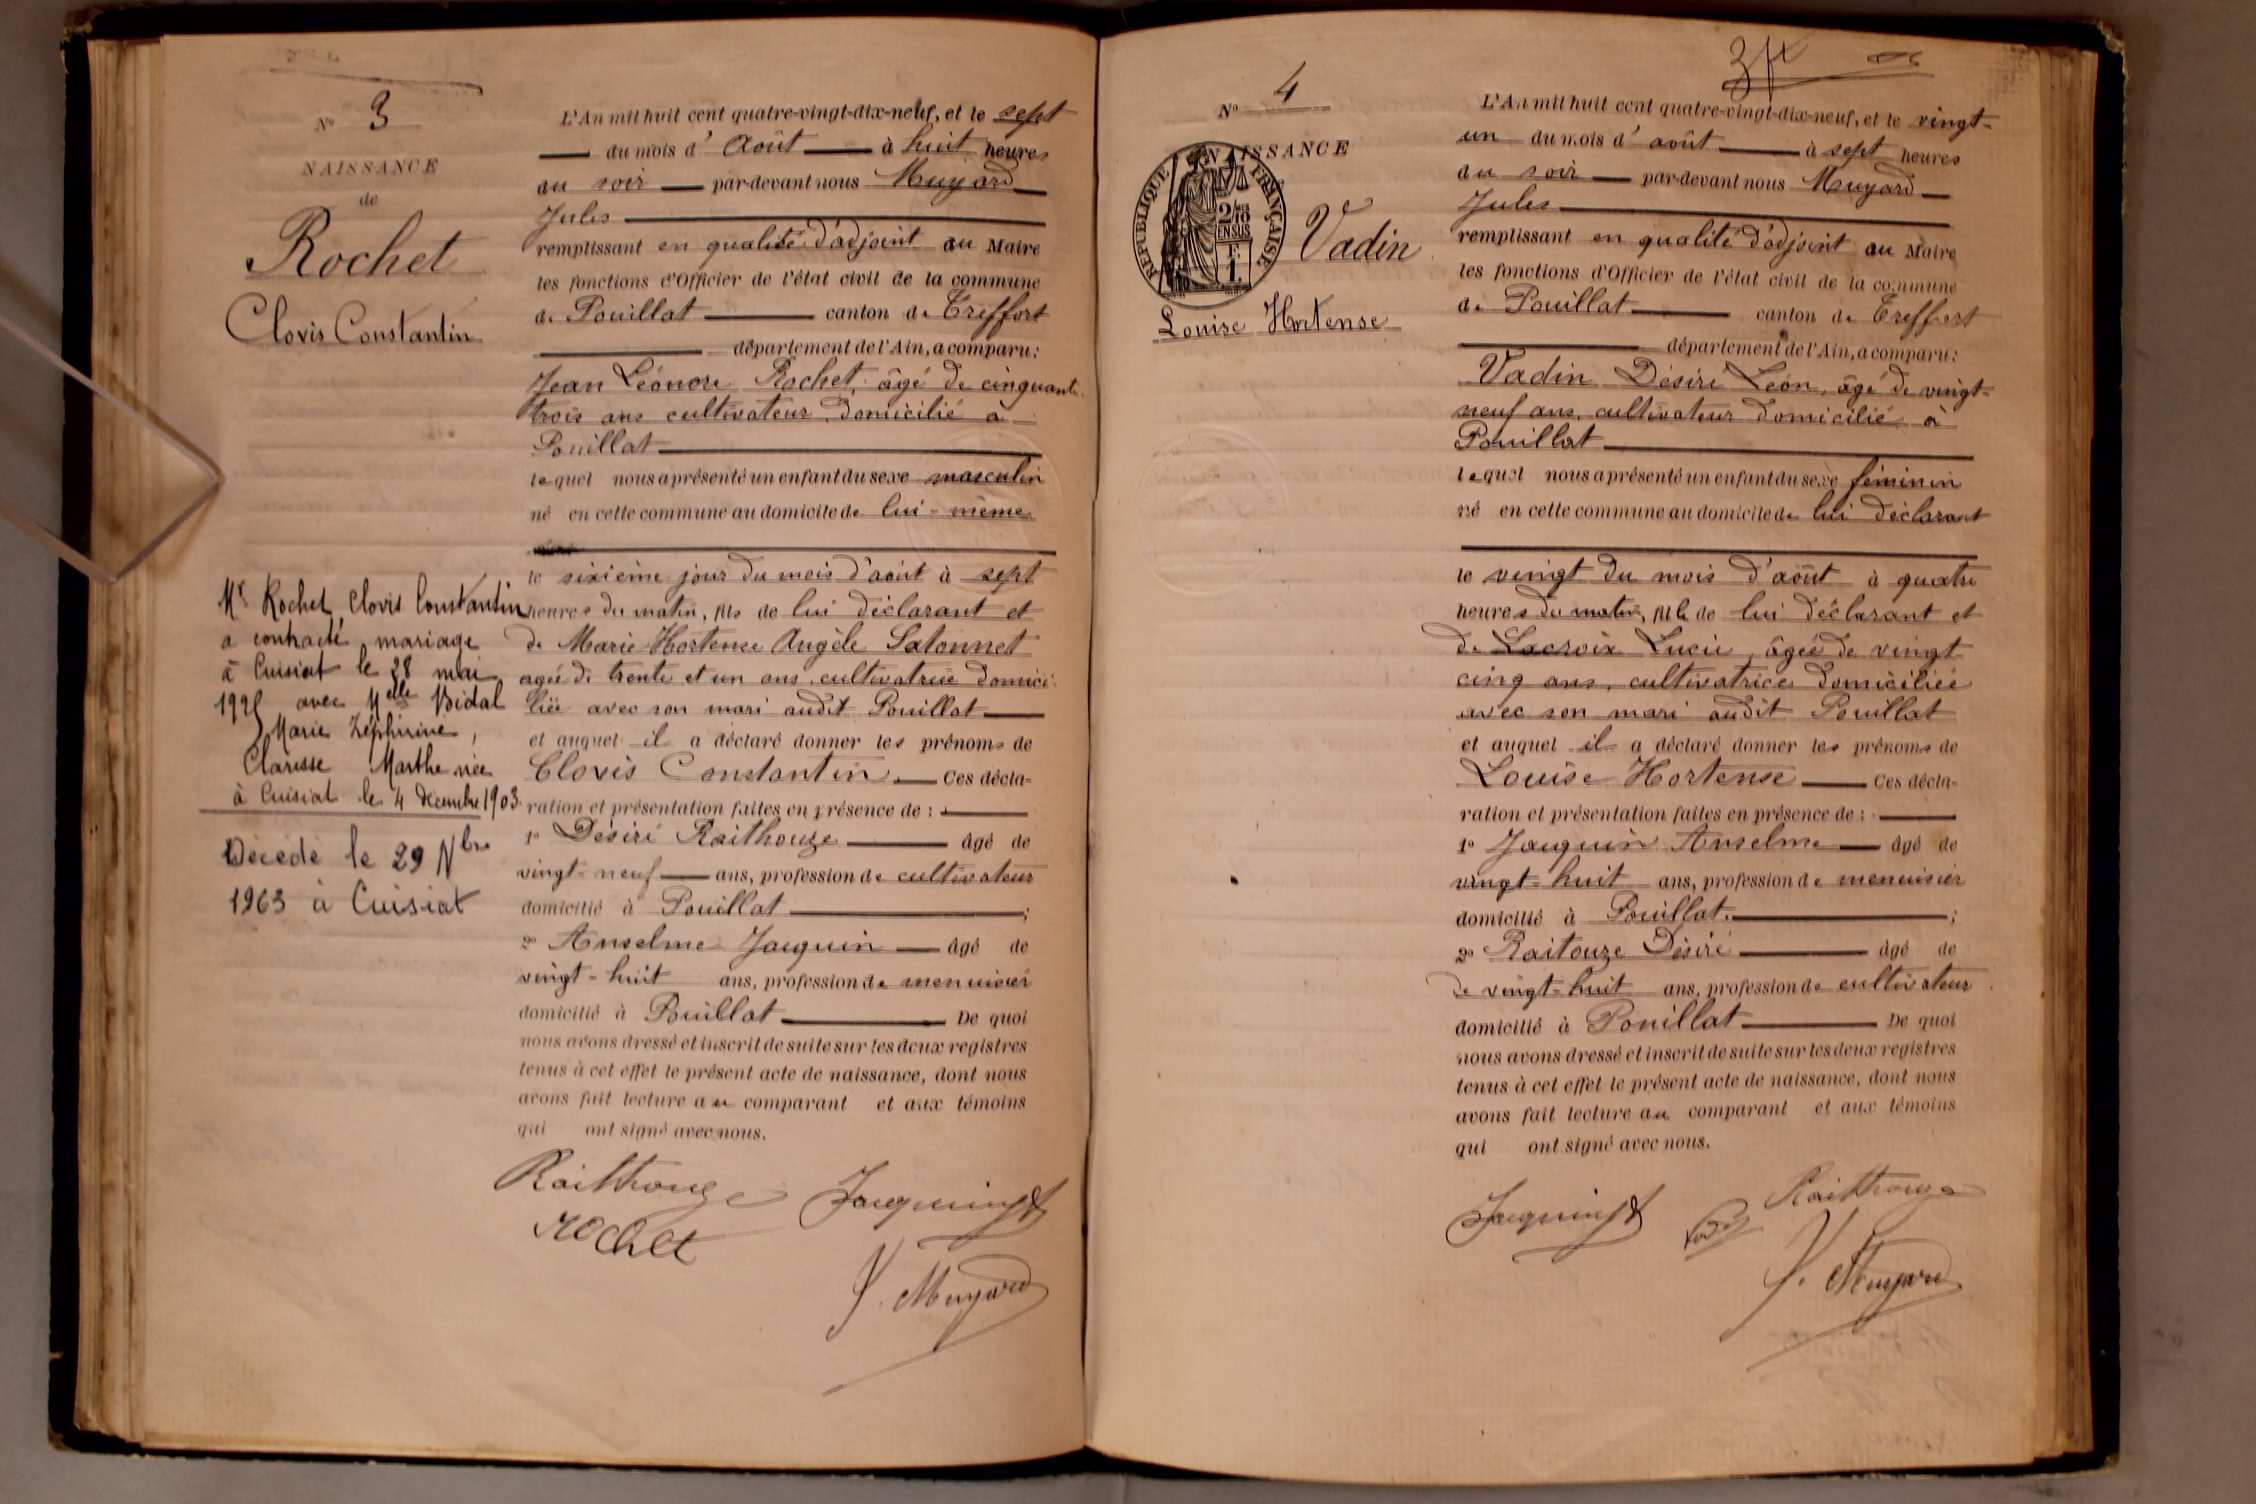 N° 3
NAISSANCE
de
Rochet
Clovis Constantin
Mr Rochet Clovis Constantin
a contracté mariage
à Cuisiat le 28 mai
1925 avec Melle Vidal
Marie Zéphirine,
Clarisse Marthe née
à Cuisiat le 4 décembre 1903
Décédé le 29 Nbre
1963 à Cuisiat
L'An mil huit cent quatre-vingt-dix-neuf, et le sept
du mois d'Août à huit heures
du soir par-devant nous Muyard
Jules
remplissant en qualité d'adjoint au Maire
les fonctions d'Officier de l'état civil de la commune
de Pouillat canton de Treffort
département de l'Ain, a comparu:
Jean Léonore Rochet, âgé de cinquante
trois ans cultivateur, domicilié à
Pouillat
lequel nous a présenté un enfant du sexe masculin
né en cette commune au domicile de lui-même
le sixième jour du mois d'août à sept
heures du matin, fils de lui déclarant et
de Marie Hortense Angèle Satonnet
agée de trente et un ans, cultivatrice domici
liée avec son mari audit Pouillat
et auquel il a déclaré donner les prénoms de
Clovis Constantin. Ces décla-
ration et présentation faites en présence de :
1° Désiré Raithouze âgé de
vingt-neuf ans, profession de cultivateur
domicilié à Pouillat ;
2° Anselme Jacquin âgé de
vingt-huit ans, profession de menuisier
domicilié à Pouillat De quoi
nous avons dressé et inscrit de suite sur les deux registres
tenus à cet effet le présent acte de naissance, dont nous
avons fait lecture au comparant et aux témoins
qui ont signé avec nous.
Raithouze Jacquin
Rochet
J. Muyard
N° 4
NAISSANCE
RÉPUBLIQUE FRANÇAISE
2/10
EN SUS
F.
1.
Vadin
Louise Hortense
L'An mil huit cent quatre-vingt-dix-neuf, et le vingt-
un du mois d'août à sept heures
du soir par-devant nous Muyard
Jules
remplissant en qualité d'adjoint au Maire
les fonctions d'Officier de l'état civil de la commune
de Pouillat canton de Treffort
département de l'Ain, a comparu:
Vadin Désiré Léon, âgé de vingt-
neuf ans, cultivateur domicilié à
Pouillat
lequel nous a présenté un enfant du sexe féminin
né en cette commune au domicile de lui déclarant
le vingt du mois d'août à quatre
heures du matin, fille de lui déclarant et
de Lacroix Lucie, âgée de vingt
cinq ans, cultivatrice domiciliée
avec son mari audit Pouillat
et auquel il a déclaré donner les prénoms de
Louise Hortense Ces décla-
ration et présentation faites en présence de :
1° Jacquin Anselme âgé de
vingt-huit ans, profession de menuisier
domicilié à Pouillat. ;
2° Raitouze Désiré âgé de
de vingt-huit ans, profession de cultivateur
domicilié à Pouillat De quoi
nous avons dressé et inscrit de suite sur les deux registres
tenus à cet effet le présent acte de naissance, dont nous
avons fait lecture au comparant et aux témoins
qui ont signé avec nous.
Jacquin Raithouze
J. Muyard